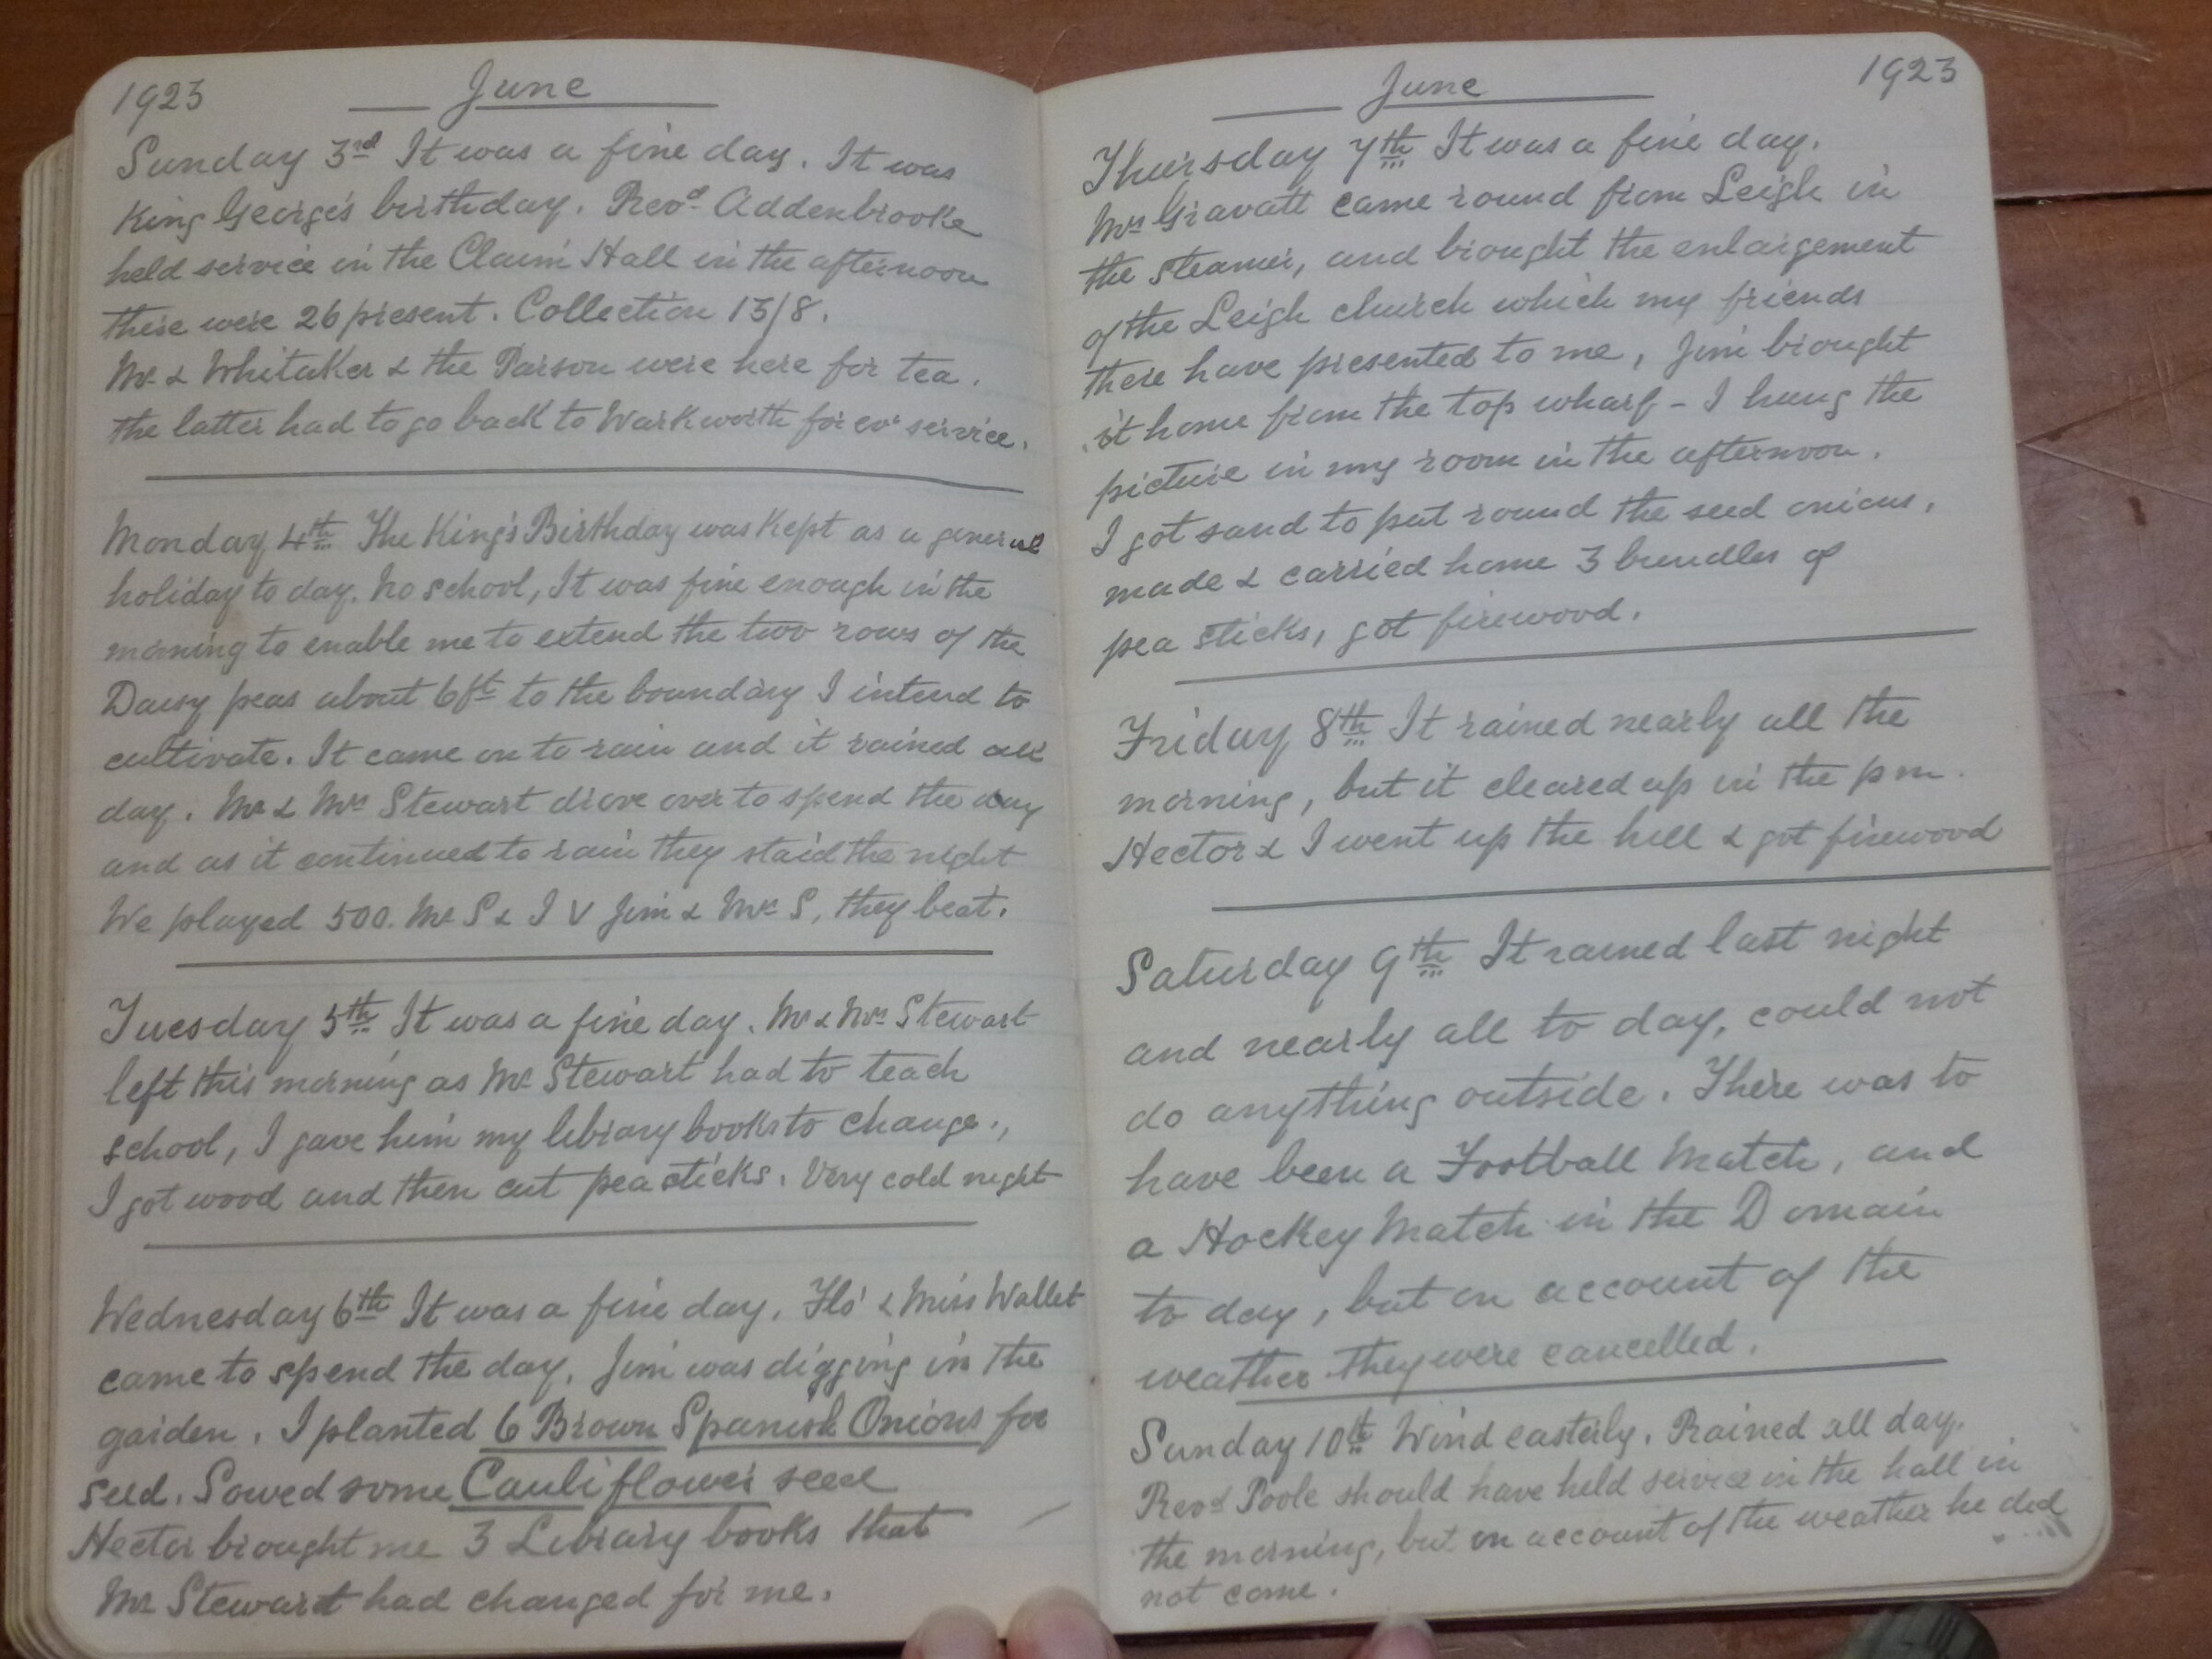 1923 June
Sunday 3rd It was a fine day. It was
King George's birthday. Revd Addenbrooke
held service in the Claim Hall in the afternoon
there were 26 present. Collection 15/8.
Mr & Whitaker & the Parson were here for tea.
the latter had to go back to Warkworth for ev' service.
Monday 4th The King's Birthday was Kept as a general
holiday to day. No school, It was fine enough in the
morning to enable me to extend the two rows of the
Daisy peas about 6ft to the boundary I intend to
cultivate. It came on to rain and it rained all
day. Mr & Mrs Stewart drove over to spend the day
and as it continued to rain they staid the night
We played 500. Mr S & I V Jim & Mrs S, they beat.
Tuesday 5th It was a fine day. Mr & Mrs Stewart
left this morning as Mr Stewart had to teach
school, I gave him my library books to change.,
I got wood and then cut pea sticks. Very cold night
Wednesday 6th It was a fine day. Flo' & Miss Wallet
came to spend the day. Jim was digging in the
garden. I planted 6 Brown Spanish Onions for
seed. Sowed some Cauliflower seed
Hector brought me 3 Library books that
Mr Stewart had changed for me.
June 1923
Thursday 7th It was a fine day.
Mrs Gravatt came round from Leigh in
the steamer, and brought the enlargement
of the Leigh church which my friends
there have presented to me, Jim brought
it home from the top wharf - I hung the
picture in my room in the afternoon.
I got sand to put round the seed onions,
made & carried home 3 bundles of
pea sticks, got firewood.
Friday 8th It rained nearly all the
morning, but it cleared up in the pm.
Hector & I went up the hill & got firewood
Saturday 9th It rained last night
and nearly all to day, could not
do anything outside. There was to
have been a Football Match, and
a Hockey Match in the Domain
to day, but on account of the
weather they were cancelled.
Sunday 10th Wind easterly. Rained all day.
Revd Poole should have held service in the hall in
the morning, but on account of the weather he did
not come.